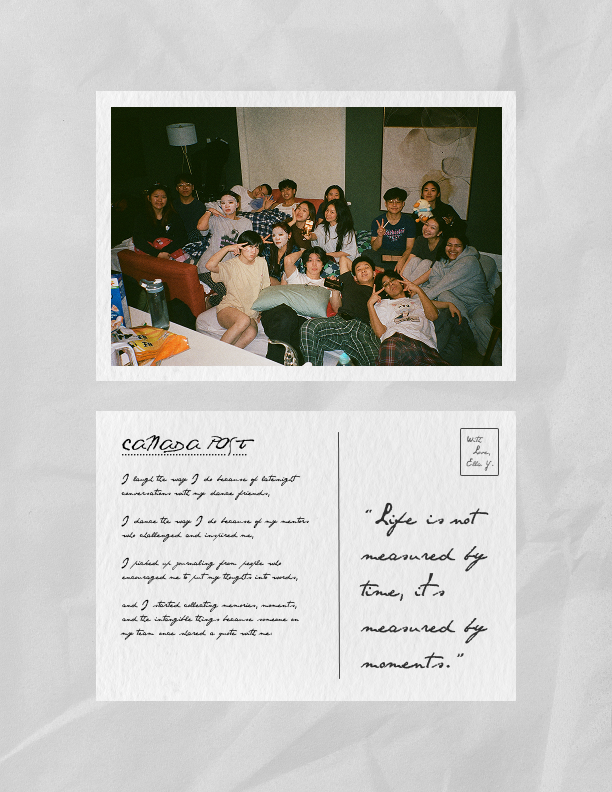 CANADA POST
I laugh the way I do because of latenight
conversations with my dance friends,
I dance the way I do because of my mentors
who challenged and inspired me,
I picked up journaling from people who
encouraged me to put my thoughts into words,
and I started collecting memories, moments,
and the intangible things because someone on
my team once shared a quote with me:
With
Love,
Ella Y.
"Life is not
measured by
time, it's
measured by
moments."